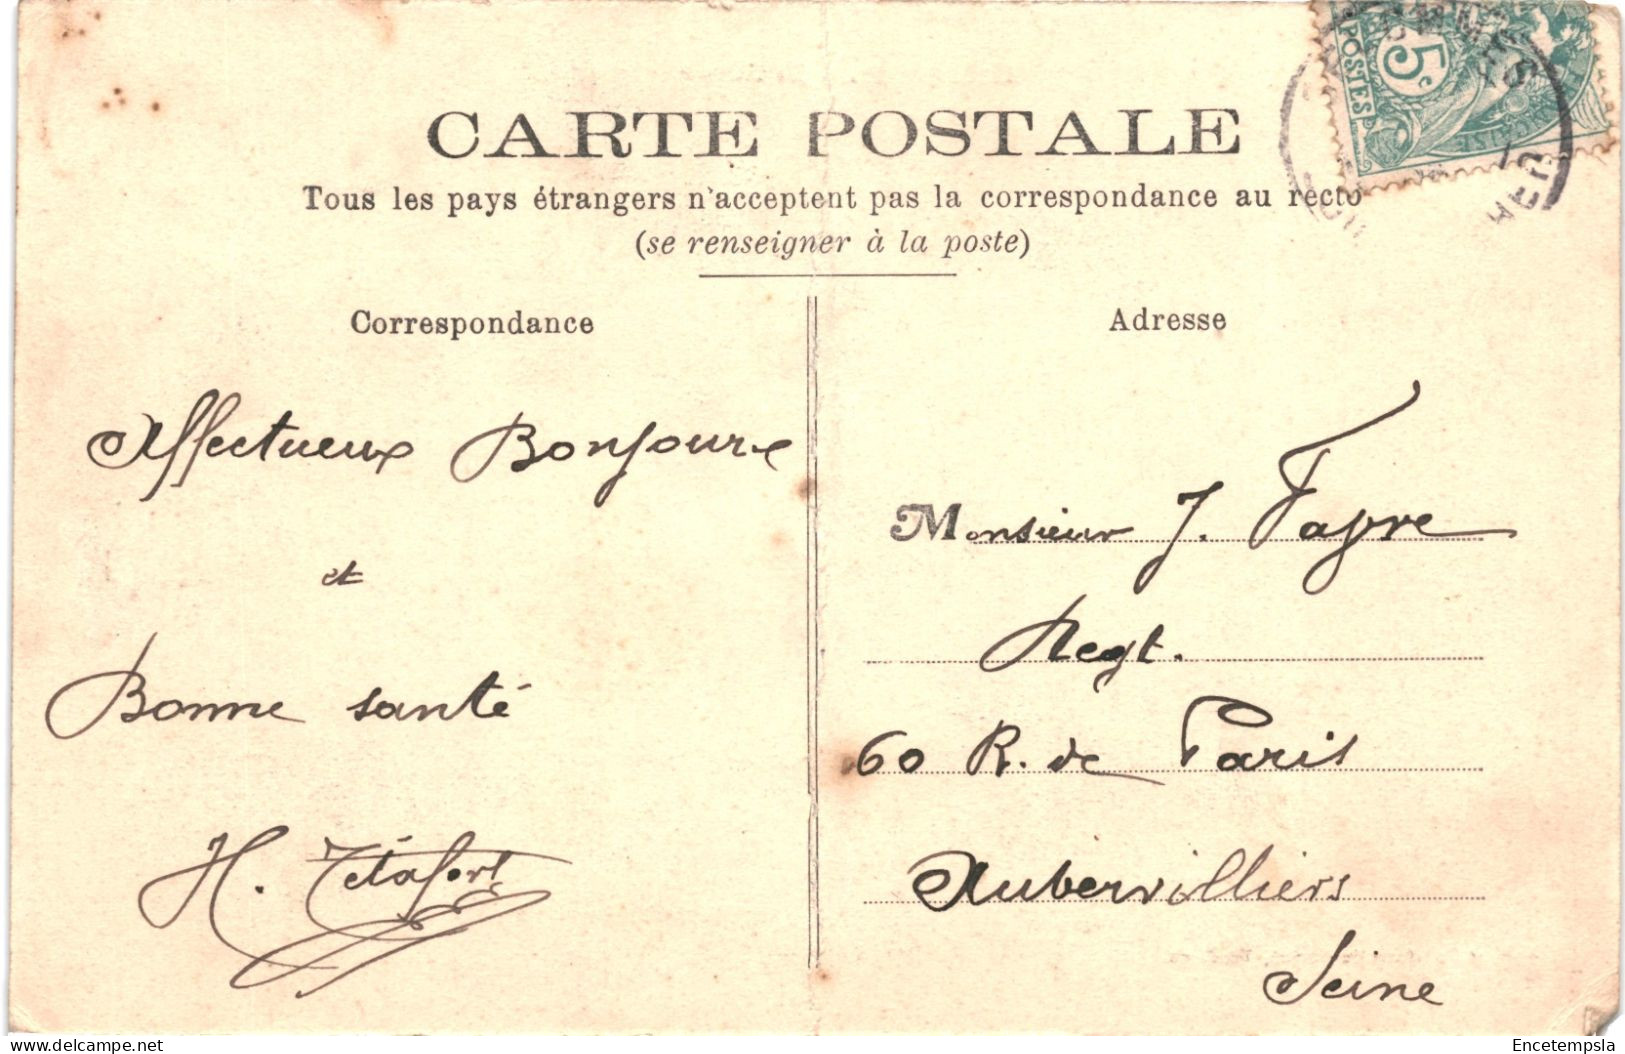 CARTE POSTALE
Tous les pays étrangers n'acceptent pas la correspondance au recto
(se renseigner à la poste)
Correspondance
Affectueux Bonjours
et
Bonne santé
H. Tétafort
Adresse
Monsieur J. Fayre
Negt.
60 R. de Paris
Aubervilliers
Seine
POSTES
5c
www.delcampe.net
Encetempsla